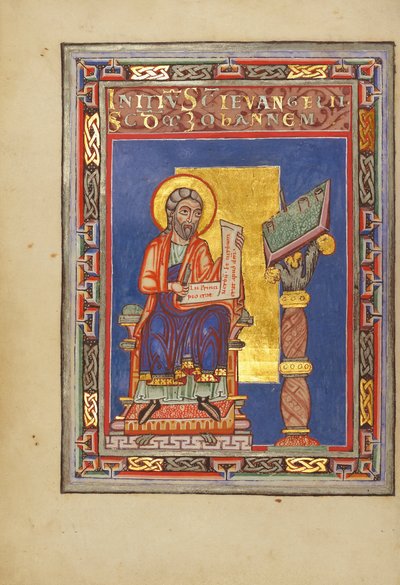 INITIV̄ SC̄I EVANGELII
SCDM IOHANNEM
In princi
pio erat